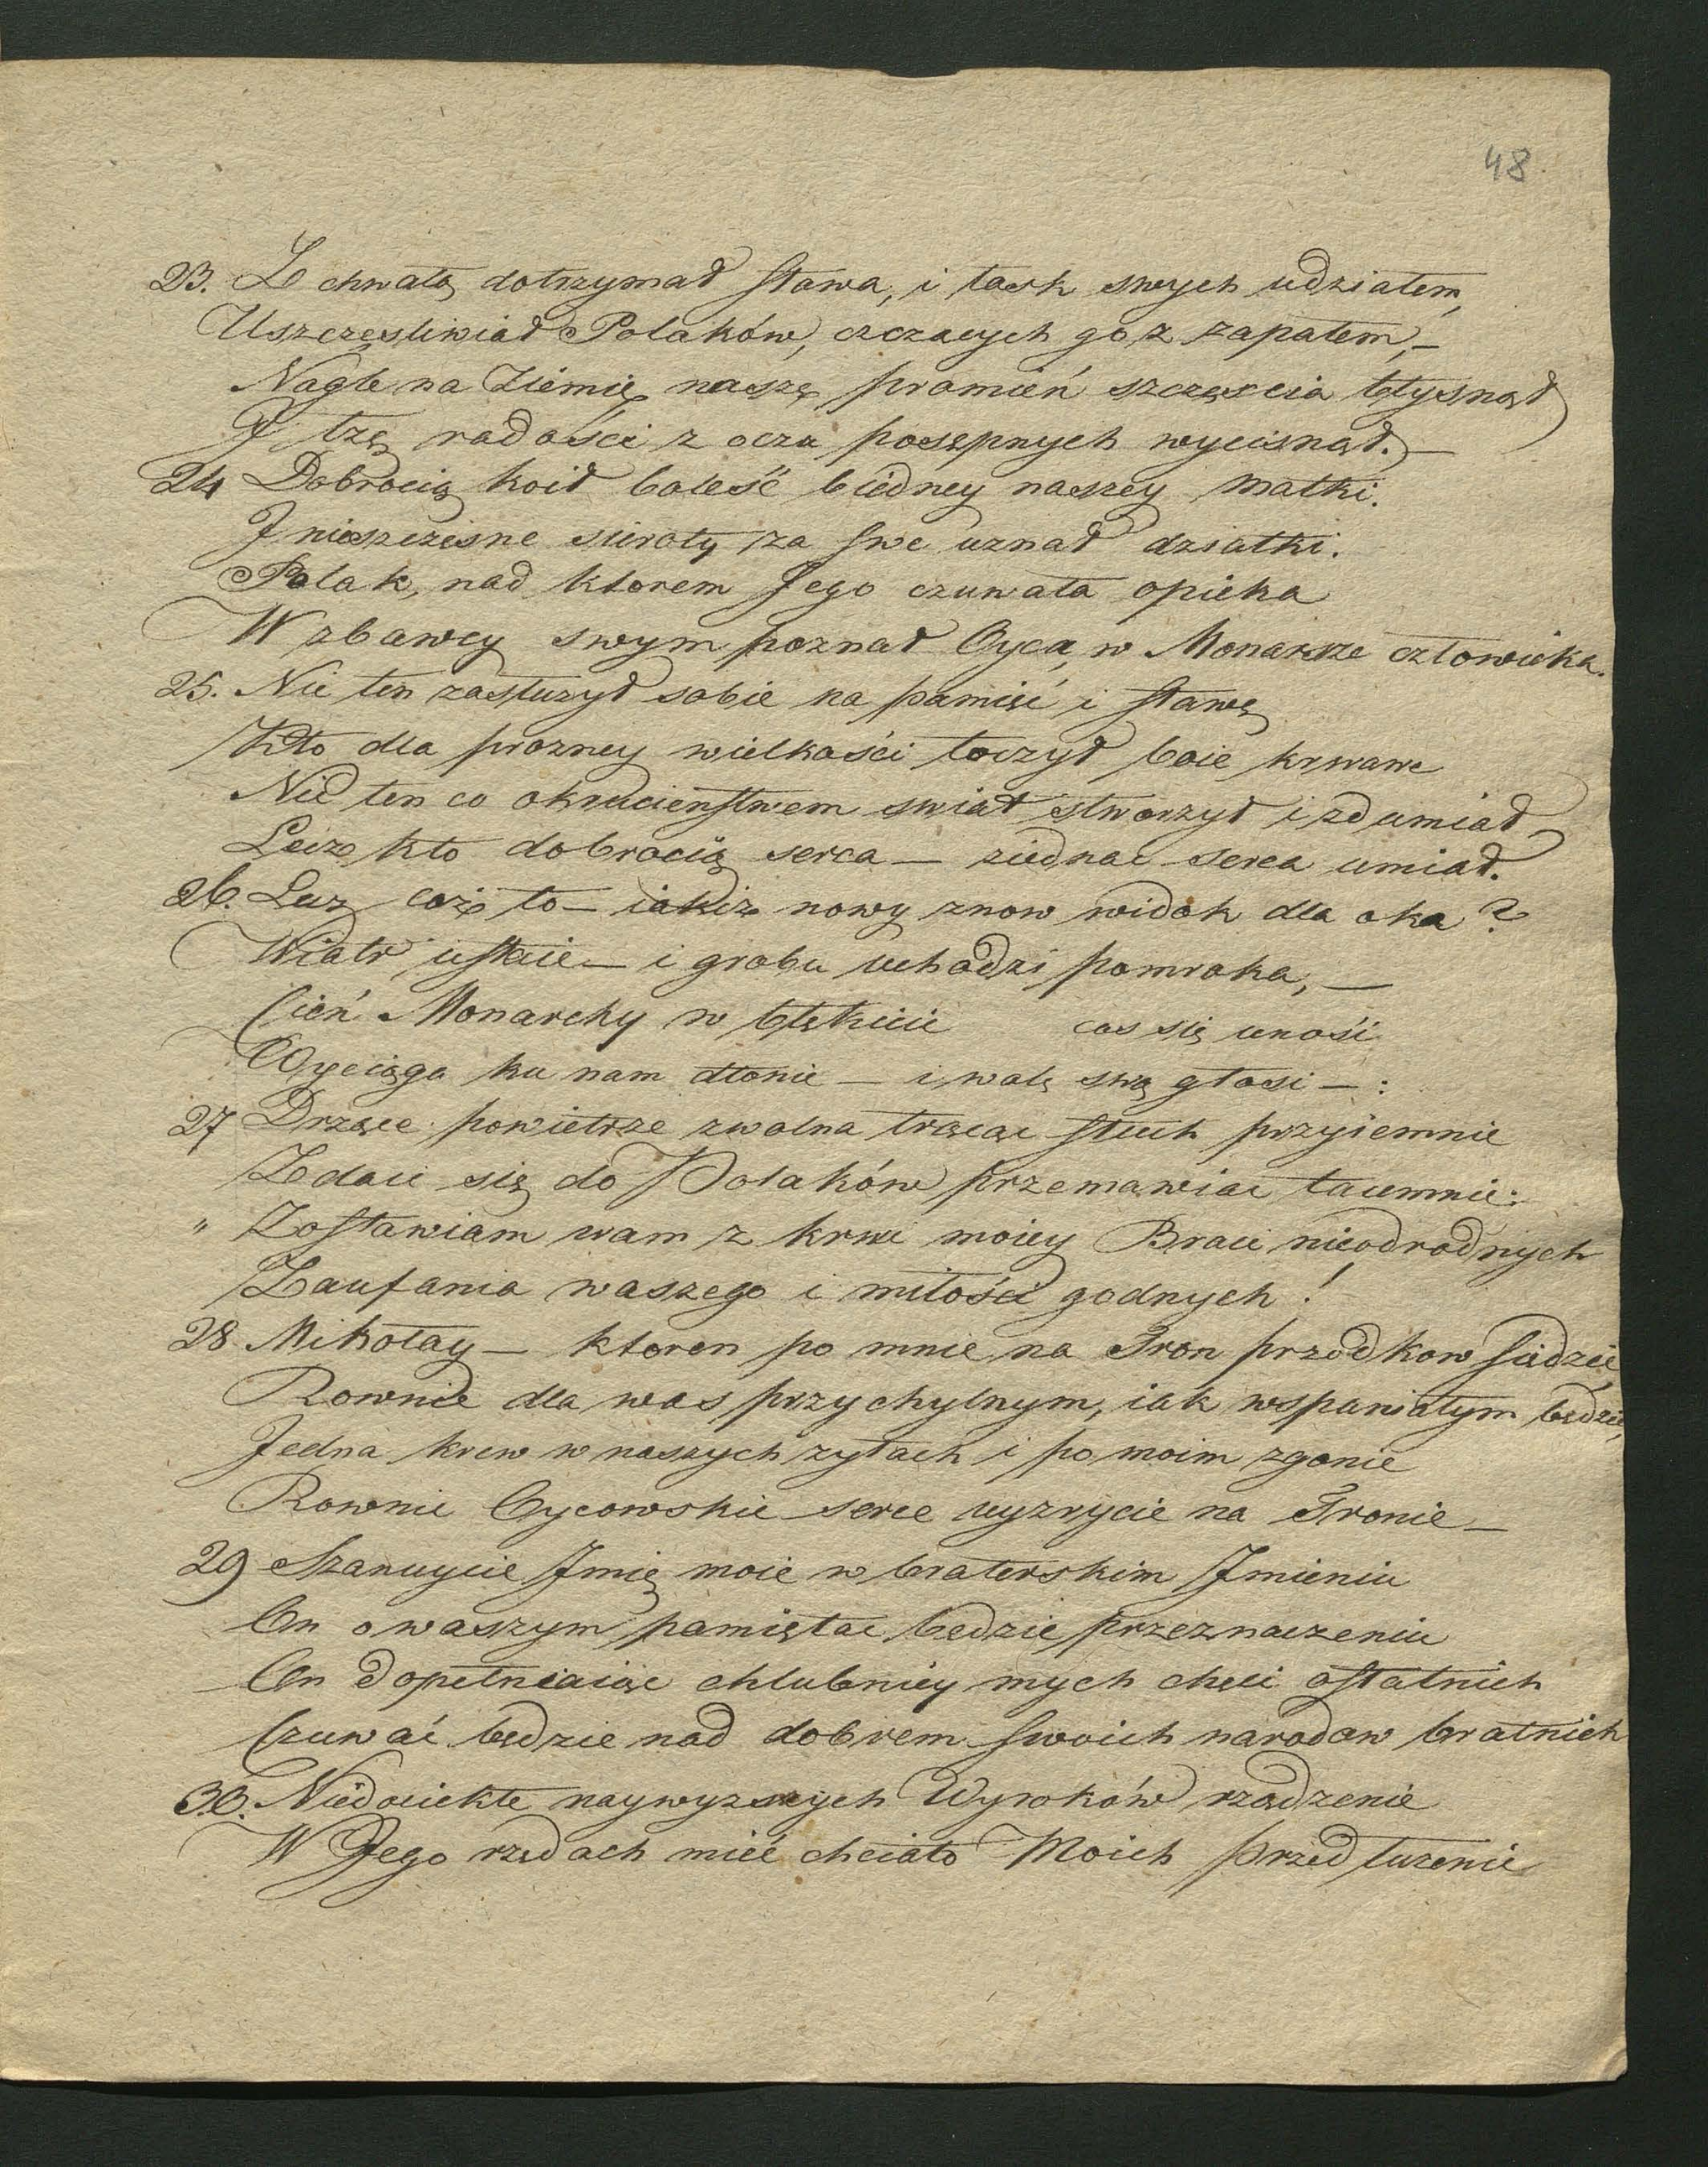 48.
23. Z chwałą dotrzymał słowa, i łask swych udziałem,
Uszczęsliwiał Polaków, czczących go z zapałem, –
Nagle na Ziemię naszę promień szczęscia błysnął
I łzę radości z oczu posępnych wycisnął. –
24 Dobrocią koił boleść biedney naszey Matki.
I nieszczesne sieroty za swe uznał dziatki.
Polak, nad ktorem Jego czuwała opieka
W zbawcy swym poznał Oyca, w Monarsze człowieka.
25. Nie ten zasłużył sobie na pamięć i sławę
Kto dla prozney wielkości toczył boie krwawe
Nie ten co okrucieństwem swiat stworzył i zdumiał,
Lecz kto dobrocią serca – ziednac serca umiał.
26. Lecz coż to – iakiż nowy znow widok dla oka?
Wiatr ustaie – i grobu uchodzi pomroka, –
Cień Monarchy w błękicie cos się unosi
Wyciąga ku nam dłonie – i wolę swą głosi – :
27 Drzące powietrze zwolna trącaiąc słuch przyiemnie
Zdaie się do Polaków przemawiac taiemnie:
" Zostawiam wam z krwi moiey Braci nieodrodnych
Zaufania waszego i miłości godnych!
28 Mikołay – ktoren po mnie na Tron przodkow siędzie,
Rownie dla was przychylnym, iak wspaniałym będzie,
Jedna krew w naszych zyłach i po moim zgonie
Rownie Oycowskie serce uyzrycie na Tronie –
29 Szanuycie Imię moie w braterskim Imieniu
On o waszym pamiętac bedzie przeznaczeniu
On dopełniaiąc chlubniey mych chęci ostatnich
Czuwać będzie nad dobrem swoich narodow bratnich
30. Niedociekłe naywyzszych Wyroków rządzenie
W Jego rządach mieć chciało Moich przedłuzenie